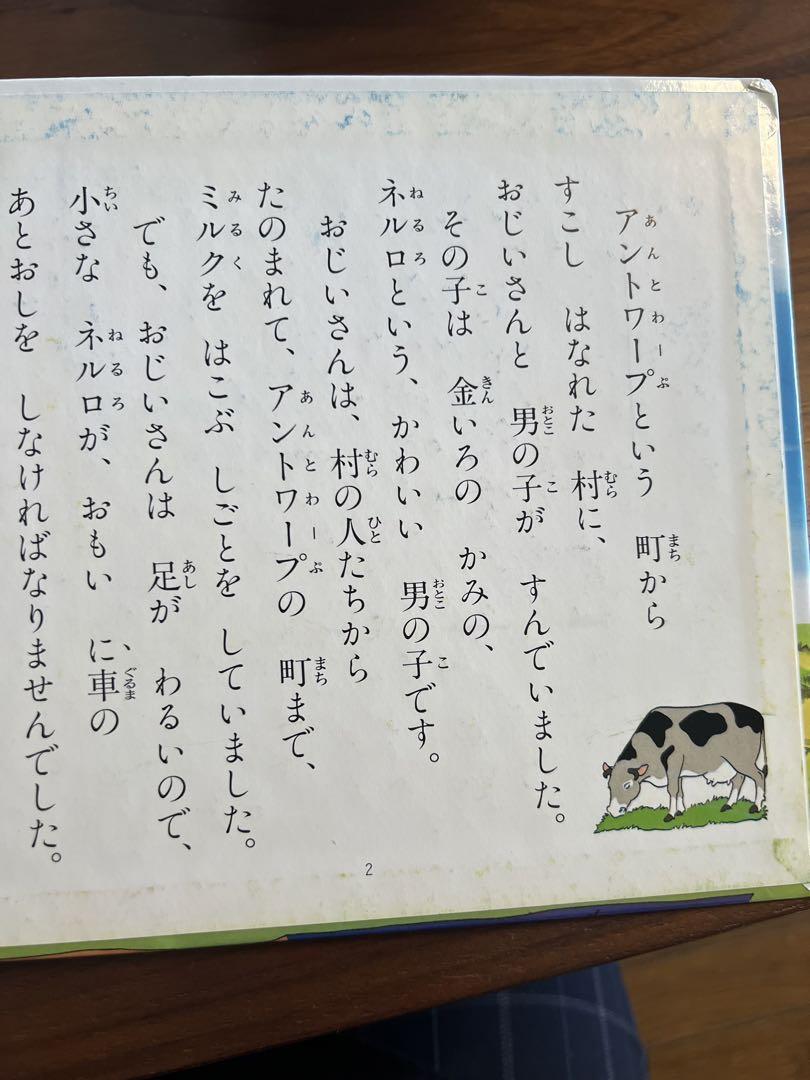 アントワープという　町から
すこし　はなれた　村に、
おじいさんと　男の子が　すんでいました。
その子は　金いろの　かみの、
ネルロという、かわいい　男の子です。
おじいさんは、村の人たちから
たのまれて、アントワープの　町まで、
ミルクを　はこぶ　しごとを　していました。
でも、おじいさんは　足が　わるいので、
小さな　ネルロが、おもい　に車の
あとおしを　しなければなりませんでした。
2